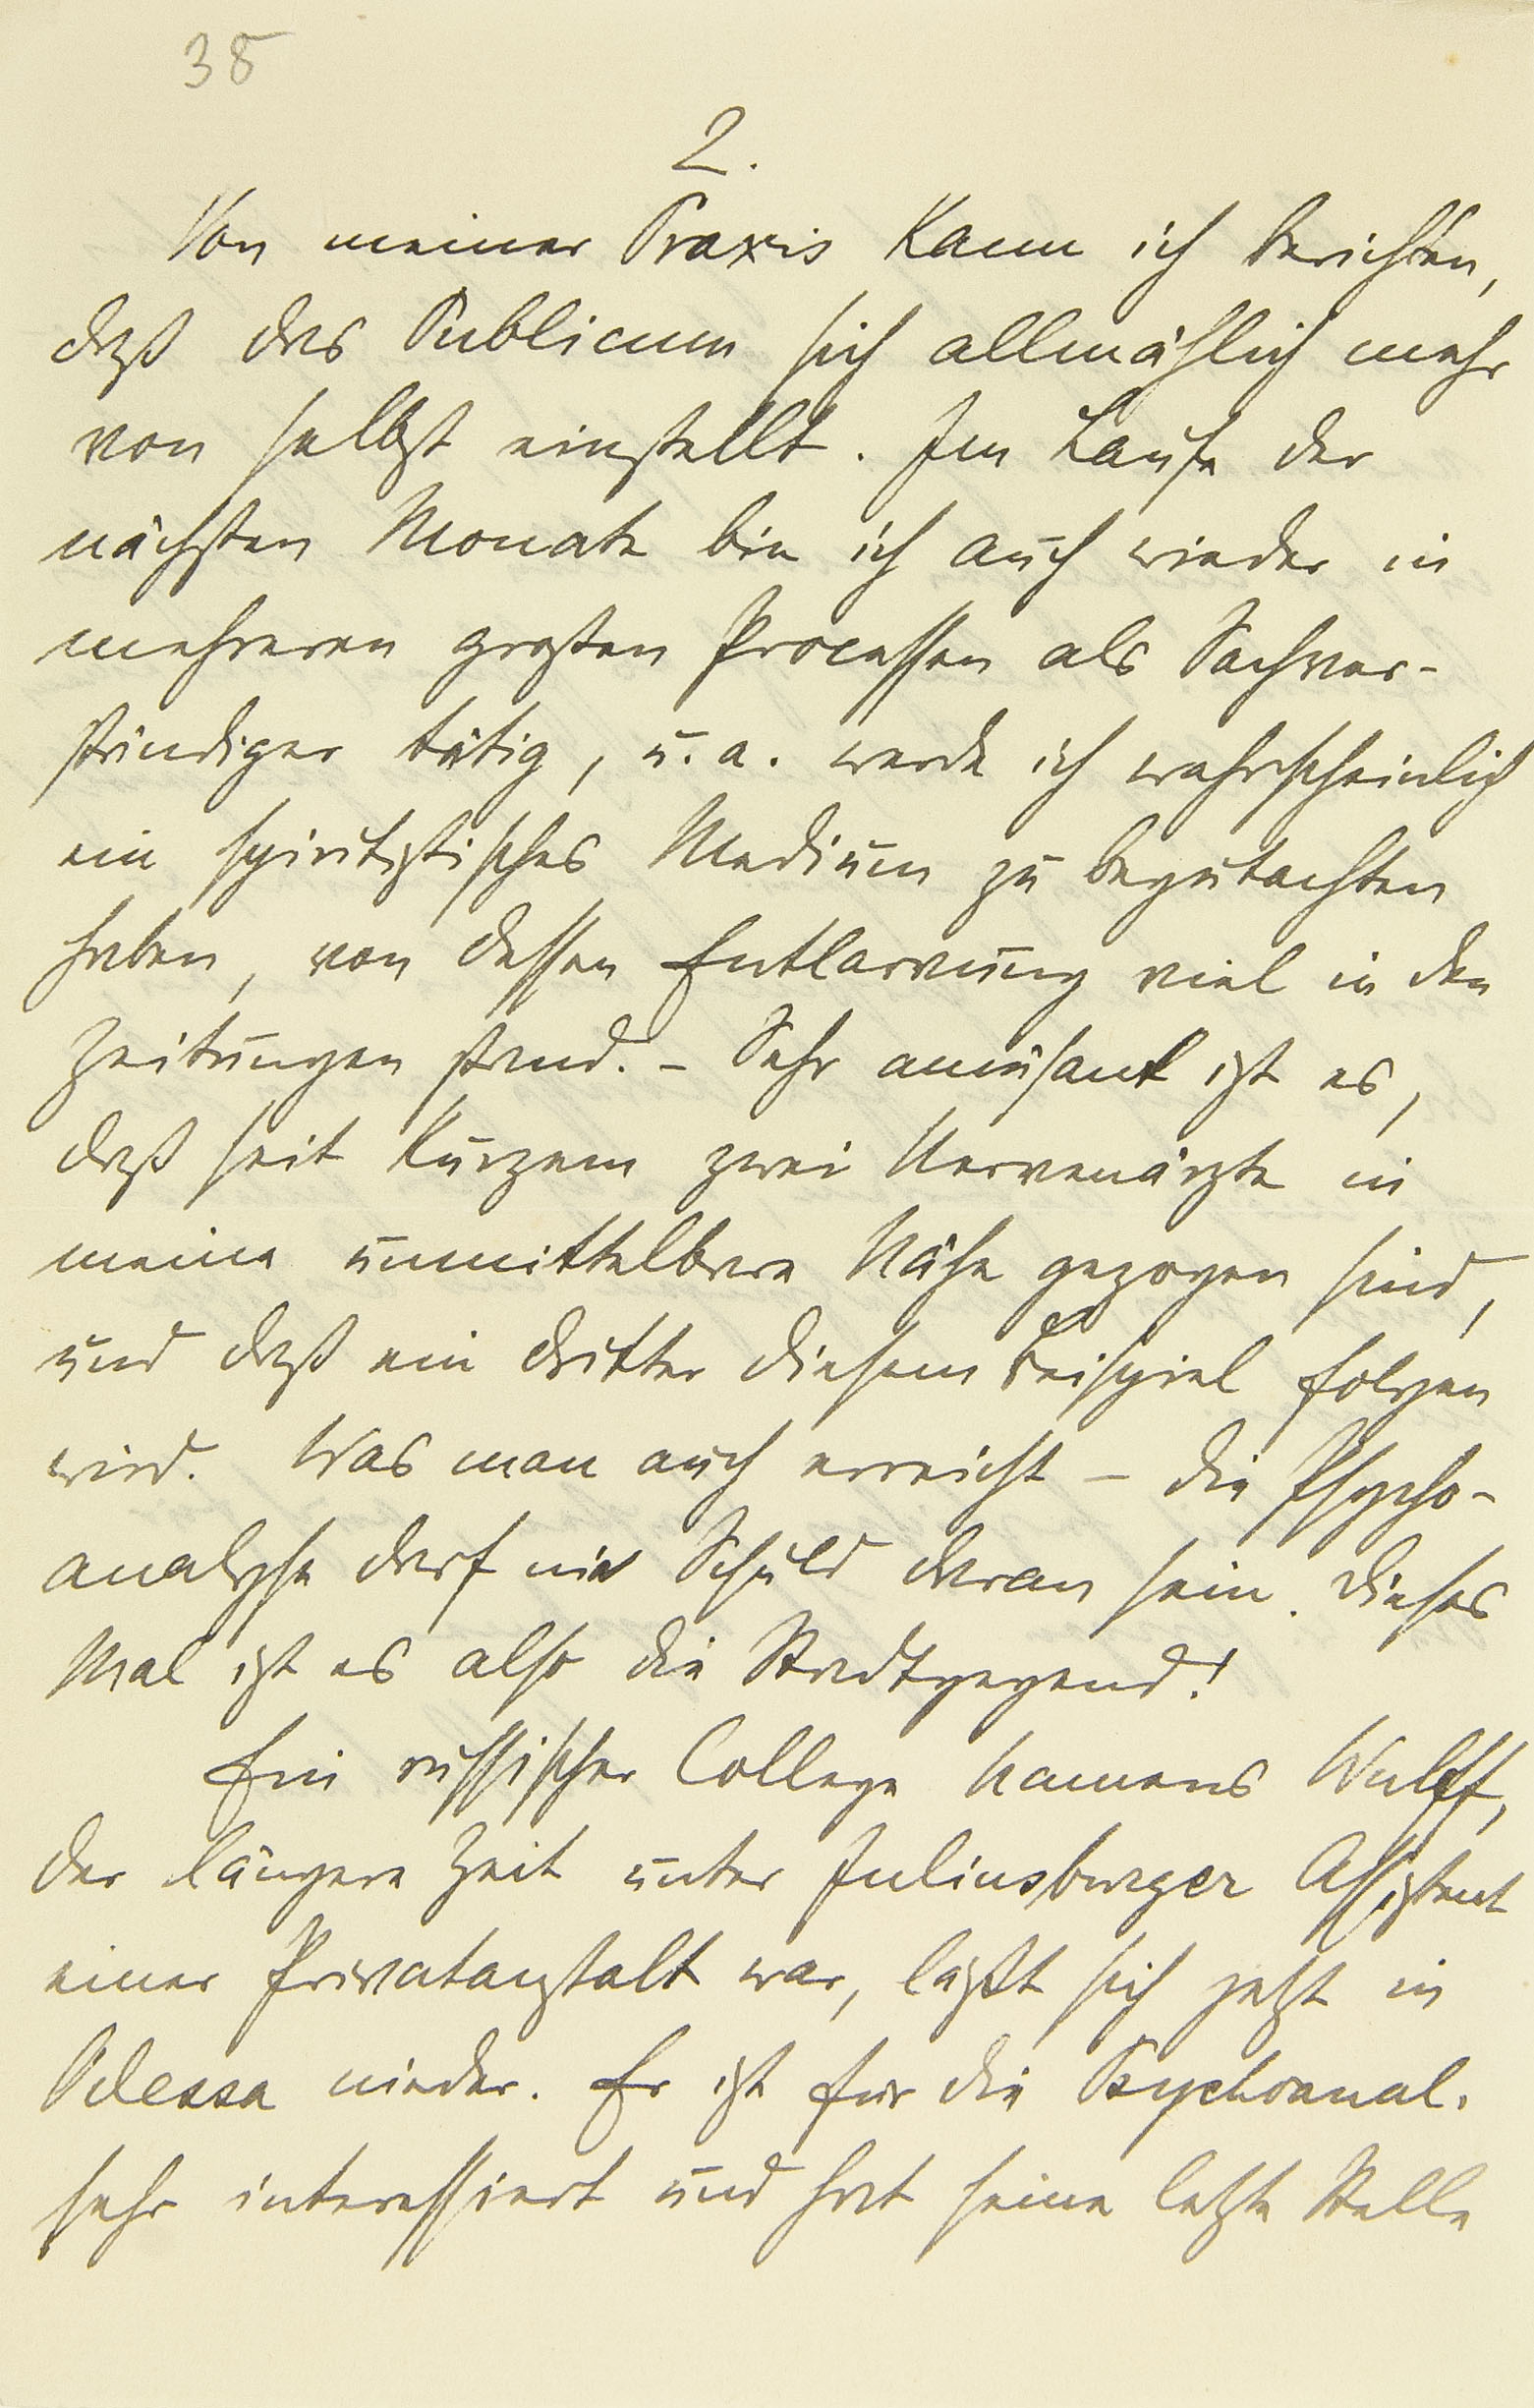 38
2.
Von meiner Praxis kann ich berichten,
daß das Publicum sich allmählich mehr
von selbst einstellt. Im Laufe der
nächsten Monate bin ich auch wieder in
mehreren großen Processen als Sachver-
ständiger tätig, u. a. werde ich wahrscheinlich
ein spiritistisches Medium zu begutachten
haben, von dessen Entlarvung viel in den
Zeitungen stand. – Sehr amüsant ist es,
daß seit Kurzem zwei Nervenärzte in
meine unmittelbare Nähe gezogen sind,
und daß ein dritter diesem Beispiel folgen
wird. Was man auch erreicht – die Psycho-
analyse darf nie Schuld daran sein. Dieses
Mal ist es also die Stadtgegend!
Ein russischer College Namens Wulff,
der längere Zeit unter Juliusburger Assistent
einer Privatanstalt war, läßt sich jetzt in
Odessa nieder. Er ist für die Psychoanal.
sehr interessiert und hat seine letzte Stelle